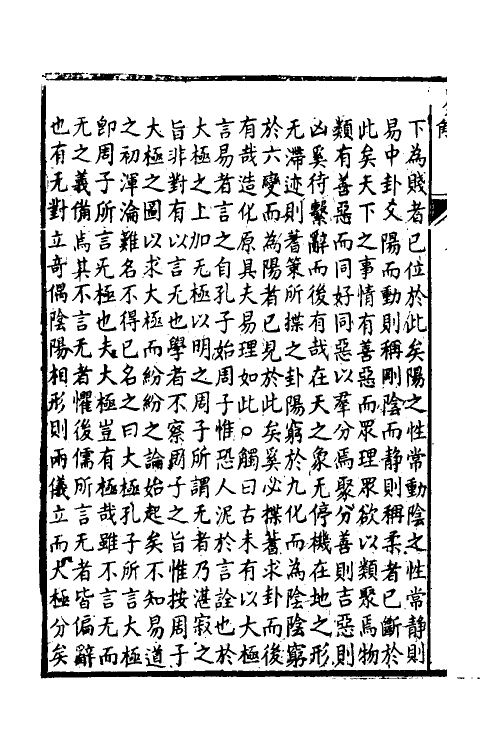 下為賤者已位於此矣陽之性常動陰之性常靜則
易中卦爻陽而動則稱剛陰而靜則稱柔者已斷於
此矣天下之事情有善惡而眾理眾欲以類聚焉物
類有善惡而同好同惡以羣分焉聚分善則吉惡則
凶奚待繫辭而後有哉在天之象无停機在地之形
无滯迹則蓍策所揲之卦陽窮於九化而為陰陰窮
於六變而為陽者已見於此矣奚必揲蓍求卦而後
有哉造化原具夫易理如此○觸曰古未有以大極
言易者言之自孔子始周子惟恐人泥於言詮也於
大極之上加无極以明之周子所謂无者乃湛寂之
旨非對有以言无也學者不察周子之旨惟按周子
大極之圖以求大極而紛紛之論始起矣不知易道
之初渾淪難名不得已名之曰大極孔子所言大極
即周子所言无極也夫大極豈有極哉雖不言无而
无之義備焉其不言无者懼後儒所言无者皆偏辭
也有无對立奇偶陰陽相形則兩儀立而大極分矣